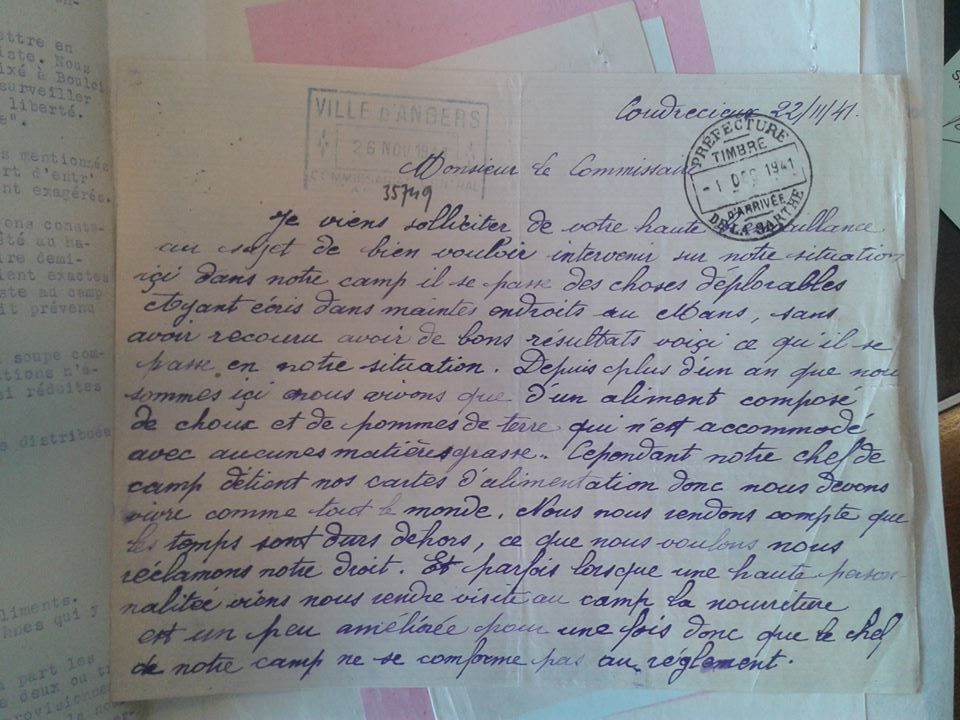 ettre en
iste. Nous
ixé à Boulci
surveiller
liberté.
e".
s mentionnés
rt d'entr'
nt exagérés.
ons consta-
été au ha-
ire demi-
ient exactes
ste au camp
it prévenu
soupe com-
tions n'é-
si réduites
s distribuée
liments.
hnes qui y
part les
e deux ou t
rovisionne
VILLE D'ANGERS
26 NOV 194
COMMISSARIAT CENTRAL
35749
Coudrecieux 22/11/41.
PRÉFECTURE
TIMBRE
1 DEC 1941
D'ARRIVÉE
DE LA SARTHE
Monsieur le Commissaire
Je viens solliciter de votre haute bienveillance
au sujet de bien vouloir intervenir sur notre situation
içi dans notre camp il se passe des choses déplorables
Ayant écris dans maintes endroits au Mans, sans
avoir recouru avoir de bons résultats voiçi ce qu'il se
passe en notre situation. Depuis plus d'un an que nous
sommes içi nous vivons que d'un aliment composé
de choux et de pommes de terre qui n'est accommodé
avec aucunes matières grasse.. Cependant notre chef de
camp détient nos cartes d'alimentation donc nous devons
vivre comme tout le monde. Nous nous rendons compte que
les temps sont durs dehors, ce que nous voulons nous
réclamons notre droit. Et parfois lorsque une haute person-
nalitée viens nous rendre visite au camp la nourriture
est un peu améliorée pour une fois donc que le chef
de notre camp ne se conforme pas au réglement.